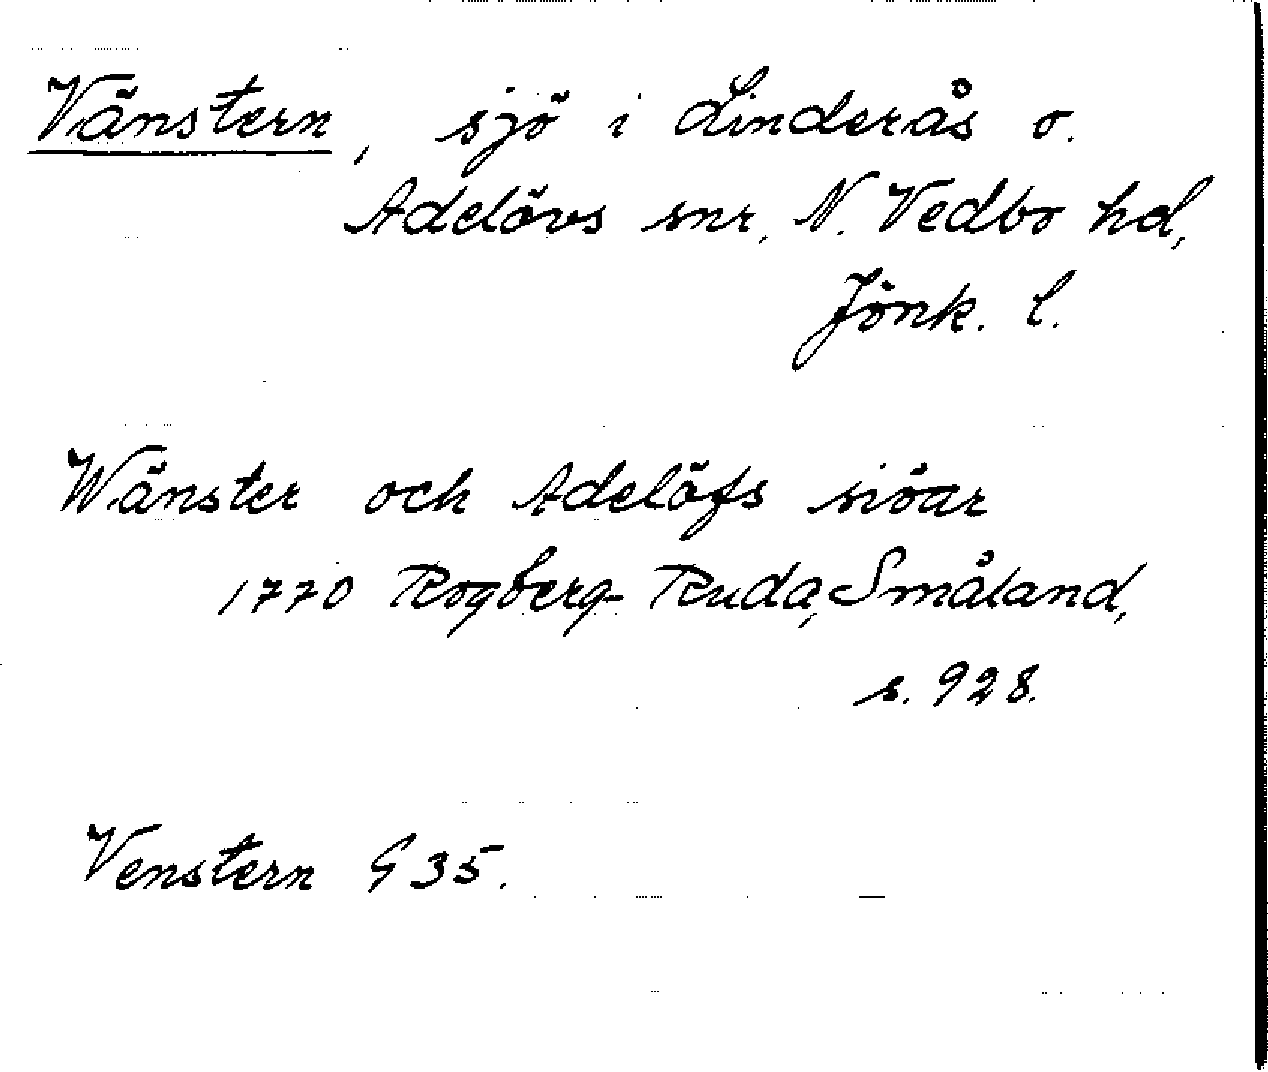 Vänstern, sjö i Linderås o.
Adelövs snr, N. Vedbo hd,
Jönk. l.
Wänster och Adelöfs siöar
1770 Rogberg-Ruda, Småland,
s. 928.
Venstern G 35.